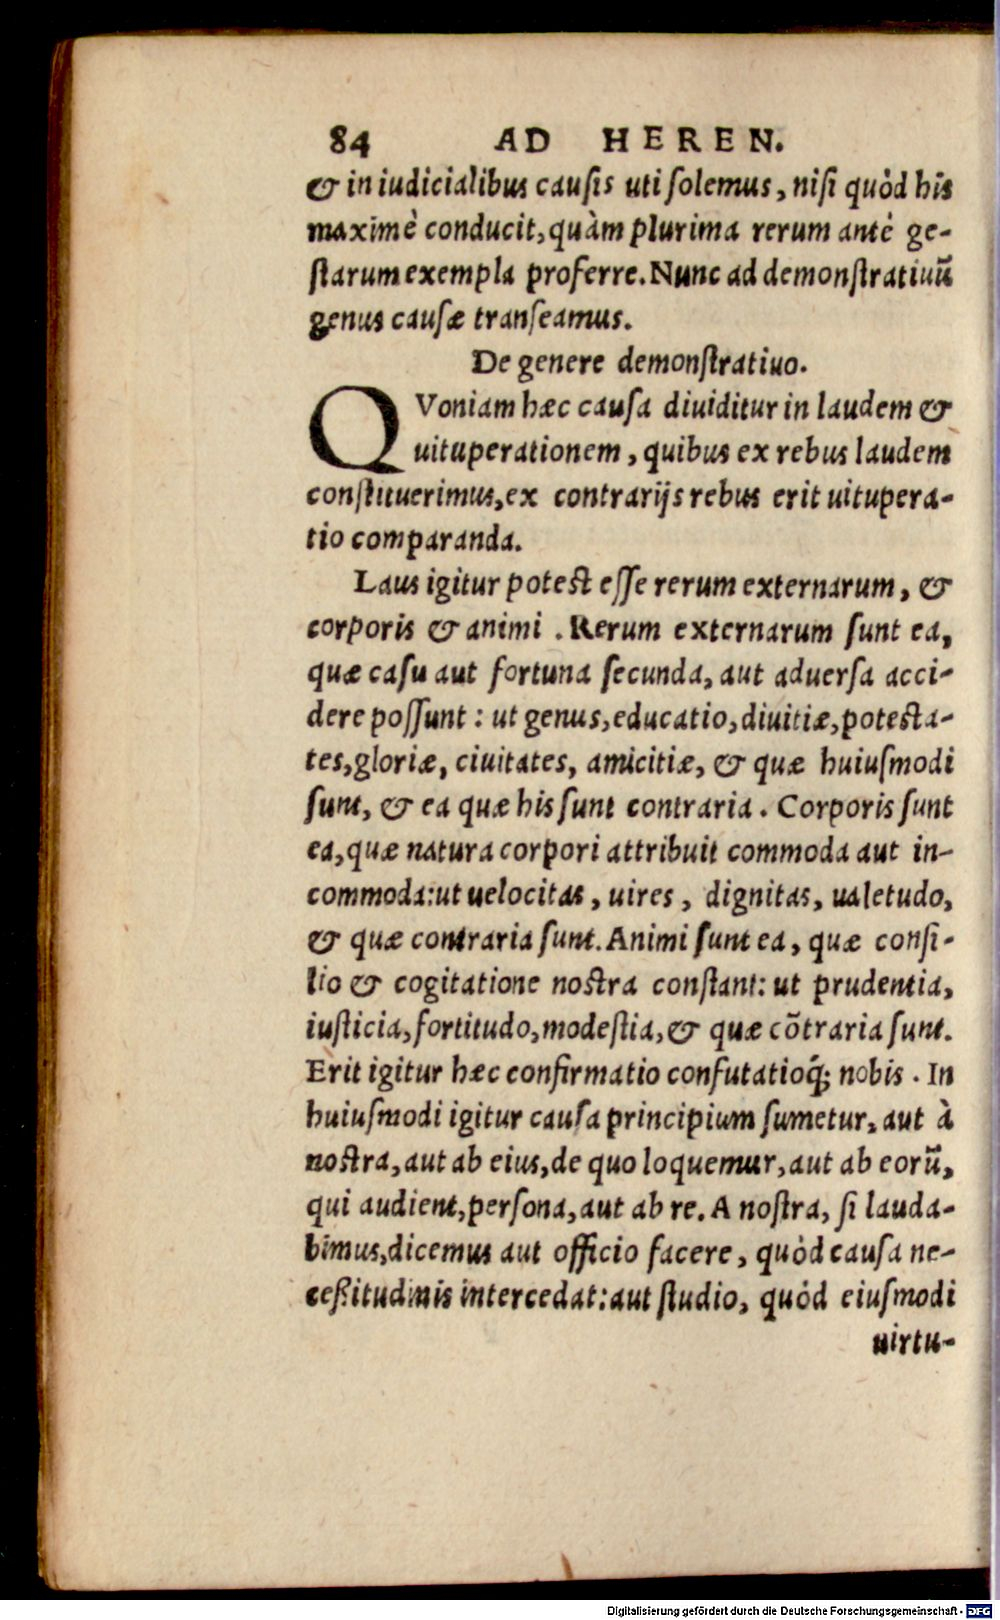 84 AD HEREN.
& in iudicialibus cauſis uti ſolemus, niſi quòd his
maximè conducit, quàm plurima rerum antè ge-
ſtarum exempla proferre. Nunc ad demonſtratiuū
genus cauſæ tranſeamus.
De genere demonſtratiuo.
QVoniam hæc cauſa diuiditur in laudem &
uituperationem, quibus ex rebus laudem
conſtituerimus, ex contrarijs rebus erit uitupera-
tio comparanda.
Laus igitur poteſt eſſe rerum externarum, &
corporis & animi . Rerum externarum ſunt ea,
quæ caſu aut fortuna ſecunda, aut aduerſa acci-
dere poſſunt : ut genus, educatio, diuitiæ, poteſta-
tes, gloriæ, ciuitates, amicitiæ, & quæ huiuſmodi
ſunt, & ea quæ his ſunt contraria . Corporis ſunt
ea, quæ natura corpori attribuit commoda aut in-
commoda: ut uelocitas, uires, dignitas, ualetudo,
& quæ contraria ſunt. Animi ſunt ea, quæ conſi-
lio & cogitatione noſtra conſtant: ut prudentia,
iuſticia, fortitudo, modeſtia, & quæ cōtraria ſunt.
Erit igitur hæc confirmatio confutatioq́; nobis . In
huiuſmodi igitur cauſa principium ſumetur, aut à
noſtra, aut ab eius, de quo loquemur, aut ab eorū,
qui audient, perſona, aut ab re. A noſtra, ſi lauda-
bimus, dicemus aut officio facere, quòd cauſa ne-
ceßitudinis intercedat: aut ſtudio, quòd eiuſmodi
uirtu-
Digitalisierung gefördert durch die Deutsche Forschungsgemeinschaft - DFG